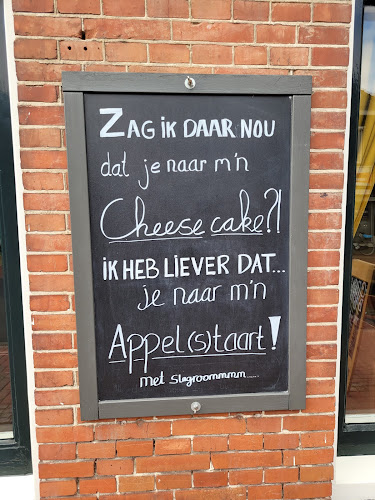 ZAG IK DAAR NOU
dat je naar m'n
Cheese cake?!
IK HEB LIEVER DAT...
je naar m'n
Appel(s)taart!
met slagroommmm.....